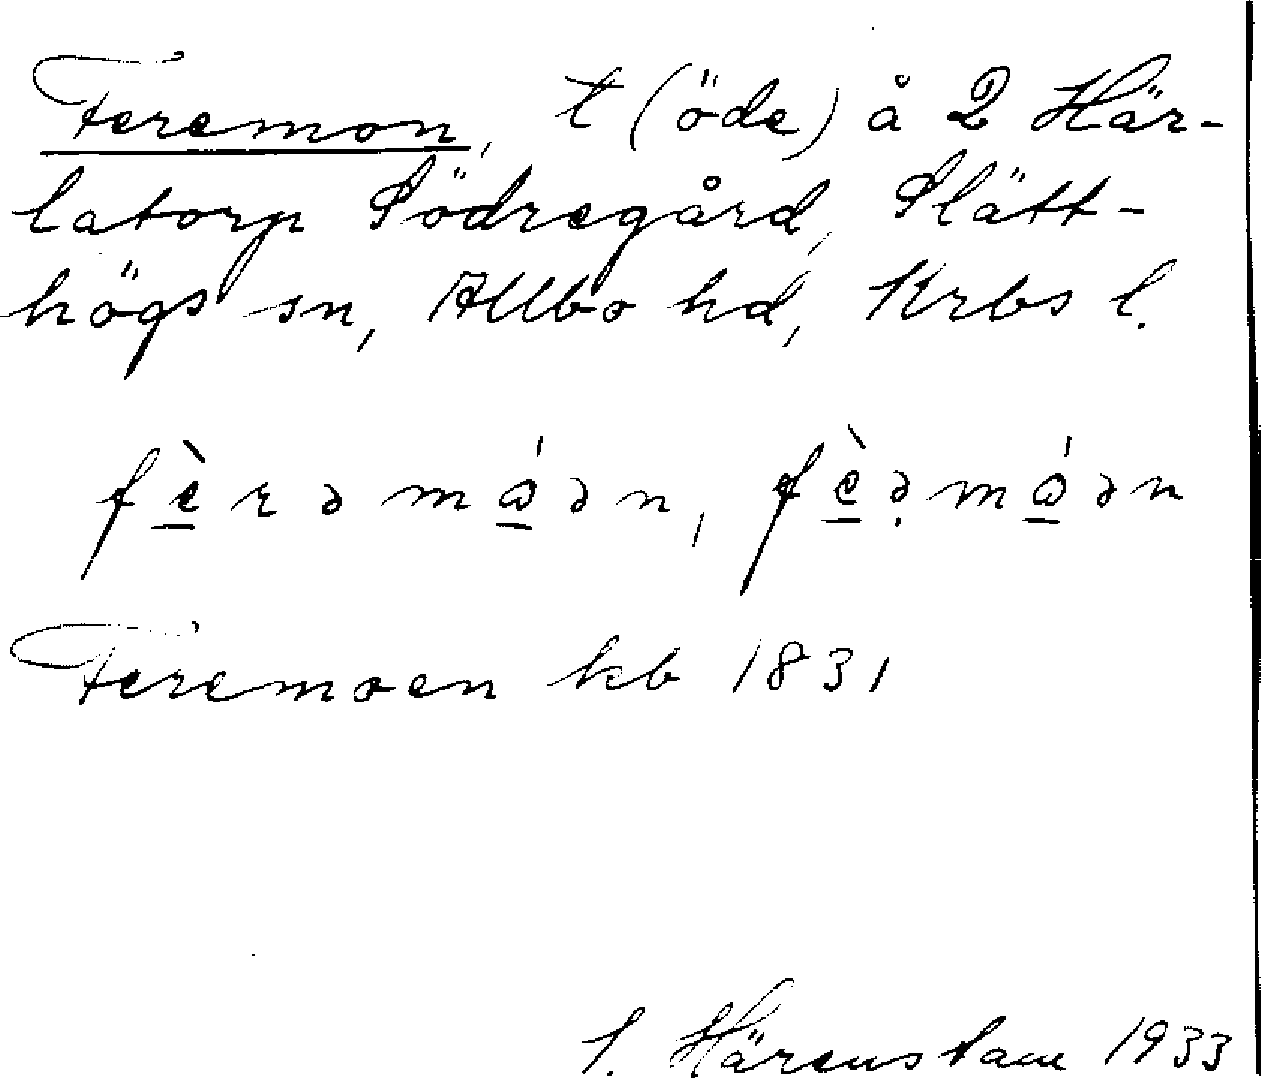 Feremon, t (öde) å 2 Här-
latorp Södregård, Slätt-
högs sn, Allbo hd, Krbs l.
fèrəmǻən, fèə̣mǻən
Feremoen kb 1831
S. Härenstam 1933